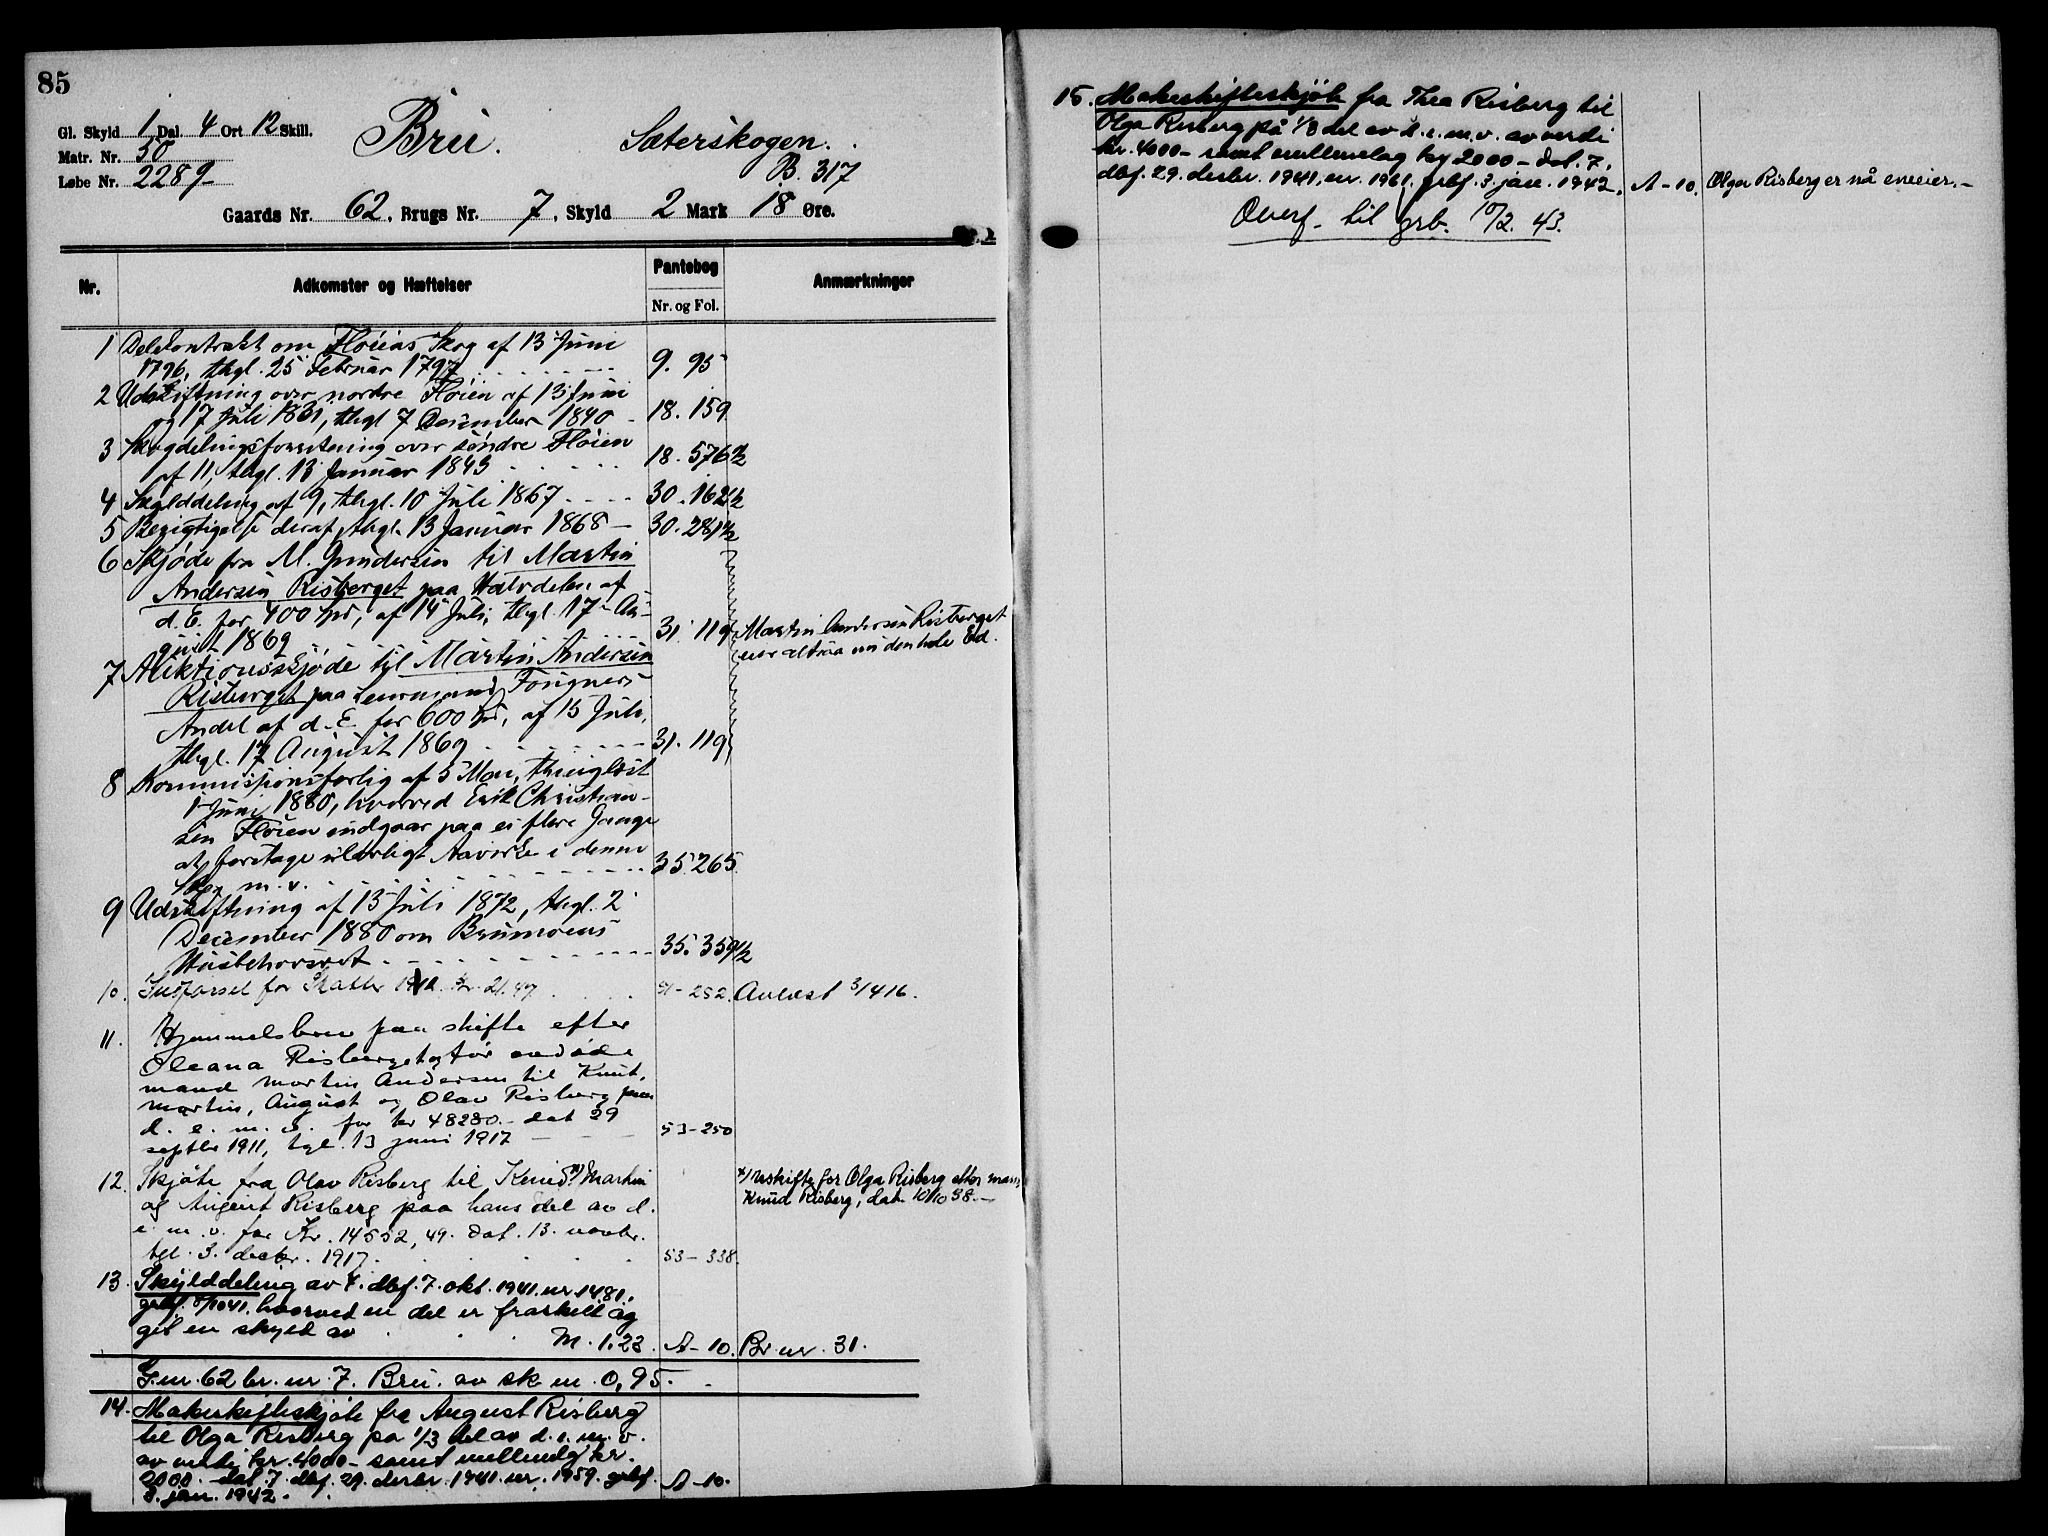 85
Gl. Skyld 1 Dal. 4 Ort 12 Skill.
Matr. Nr. 50
Løbe Nr. 228 g
Brú. Sæterskogen.
B. 317
Gaards Nr. 62, Brugs Nr. 7, Skyld 2 Mark 18 Øre.
Nr. Adkomster og Hæftelser Pantebog Anmærkninger
Nr. og Fol.
1 Delekontrakt om Floiens Skog af 13 Juni
1796, thgl. 25 Februar 1797 9. 95
2 Udskiftning over nordre Fløien af 13 Juni
og 17 Juli 1831, thgl 7 December 1840 18. 159
3 Skogdelingsforretning over søndre Fløien
af 11, thgl. 13 Januar 1843 18. 576 1/2
4 Skylddeling af 9, thgl. 10 Juli 1867 30. 162 1/2
5 Berigtigelse deraf, thgl. 13 Januar 1868 30. 281 1/2
6 Skjøde fra M. Gundersen til Martin
Andersen Risberget paa Halvdelen af
d. E. for 400 Spd, af 14 Juli, thgl. 17 Au-
gust 1869 31. 119 Martin Andersen Risberget
eier altsaa nu den hele Ed.
7 Auktionsskjøde til Martin Andersen
Risberget paa Lensmand Fougners
Andel af d. E. for 600 Spd, af 15 Juli,
thgl. 17 August 1869 31. 119
8 Kommissionsforlig af 5 Mai, thinglæst
1 Juni 1880, hvorved Erik Christian-
sen Fløien indgaar paa ei flere Gange
at foretage ulovligt Aavirke i denne
Skog m. v. 35. 265
9 Udskiftning af 13 Juli 1872, thgl. 2
December 1880 om Brumoens
Husbehovsret 35. 359 1/2
10. Utpantsel for Skatter kr. 21.47 51-252. Avlæst 3/4 16.
11. Hjemmelsbrev paa skifte efter
Oleana Risberget og før avdøde
mand Martin Andersen til Knut,
Martin, August og Olav Risberg paa
d. e. m. v. for kr 48280.- dat 29
septbr 1911, tgl. 13 juni 1917 53-250
12. Skjøte fra Olav Risberg til Knud x) Martin
og August Risberg paa hans del av d.
e. m. v. for Kr. 14552,49. Dat. 13. novbr.
tgl. 3. decbr. 1917. 53-338.
x) Uskifte for Olga Risberg etter mann
Knud Risberg, dat. 10/10 38.-
13. Skylddeling av 4. dbf. 7. okt. 1941. nr 1481.
grbf. 8/10 41. hvorved en del er fraskilt og
git en skyld av M. 1,23. A-10. Br. nr. 31.
G. nr. 62 br. nr. 7. Bru. av sk. m. 0,95.
14. Makeskifteskjøte fra August Risberg
til Olga Risberg på 1/3 del av d. e. m. v.
av verdi kr. 4000- samt mellemlag kr.
2000.- dat. 7. dbf. 29. desbr. 1941. nr. 1959. grbf.
3. jan. 1942. A-10.
15. Makeskifteskjøte fra Thea Risberg til
Olga Risberg på 1/3 del av d. e. m. v. av verdi
kr. 4000- samt mellemlag kr 2000- dat. 7.
dbf. 29. desbr. 1941. nr. 1961. grbf. 3. jan. 1942. A-10. Olga Risberg er nå eneeier.-
Overf. til grb. 10/2. 43.